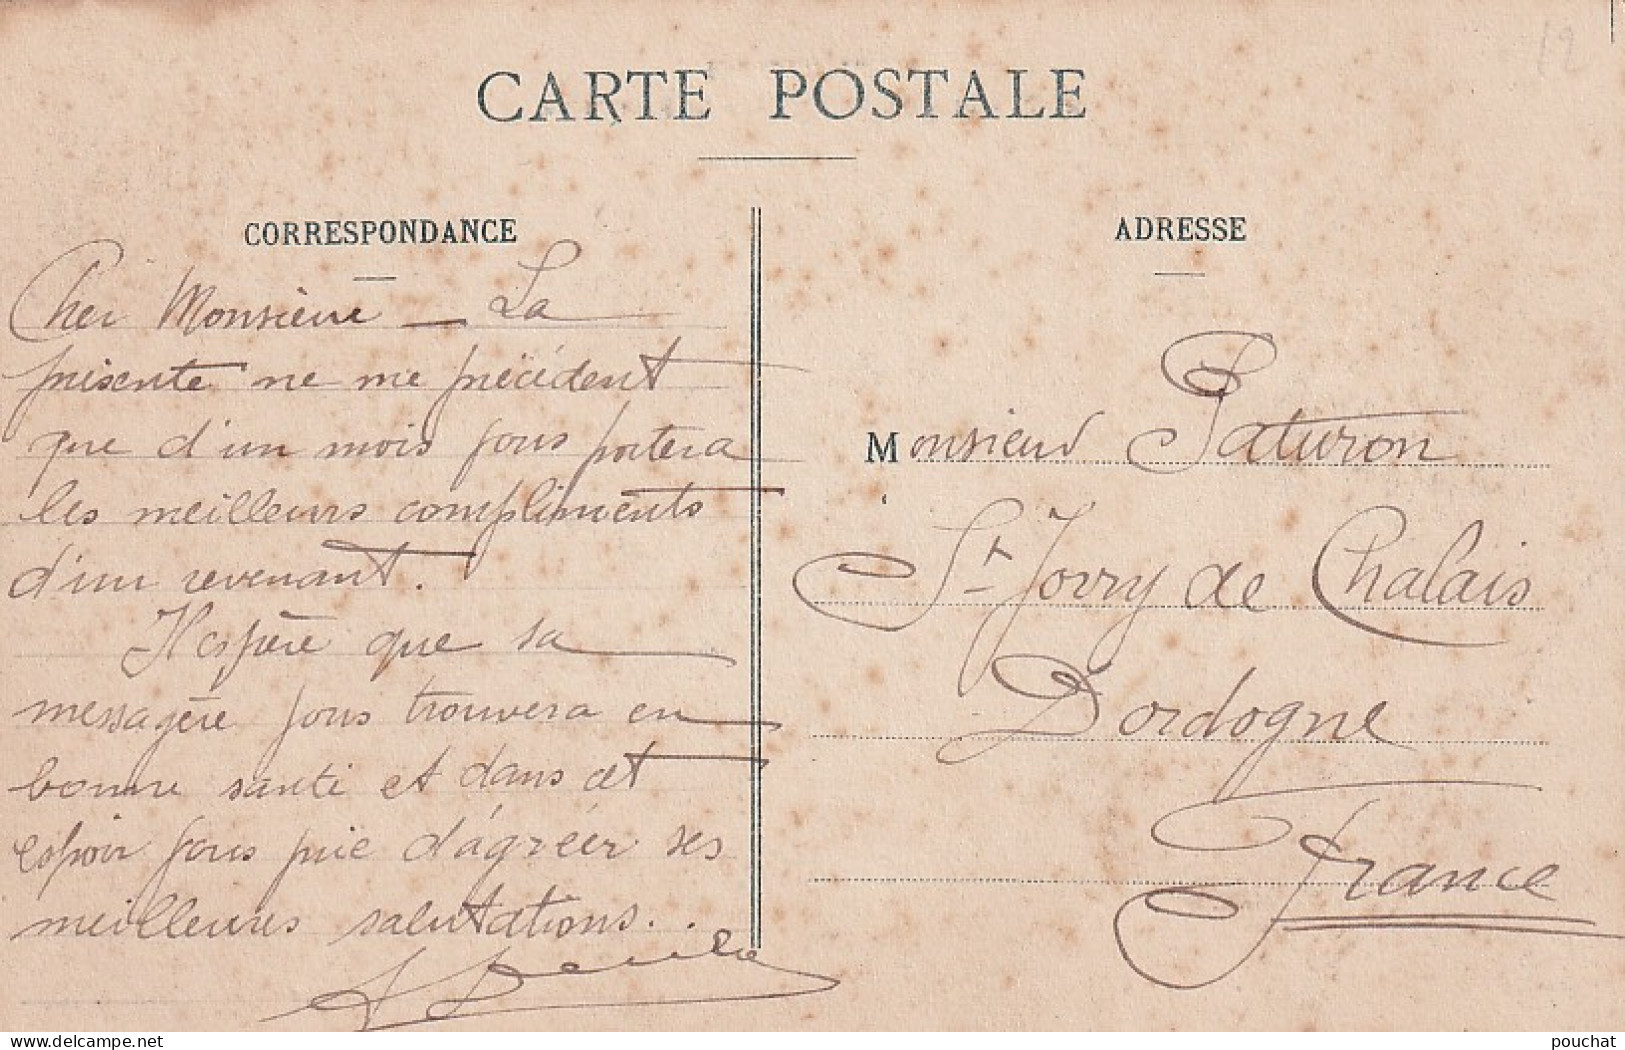 12
CARTE POSTALE
CORRESPONDANCE
Cher Monsieur — La
présente ne me précédent
que d'un mois vous portera
les meilleurs compliments
d'un revenant.
Il espère que sa
messagère vous trouvera en
bonne santé et dans cet
espoir vous prie d'agréer ses
meilleures salutations..
ADRESSE
Monsieur Paturon
St Jorry de Chalais
Dordogne
France
delcampe.net
pouchat